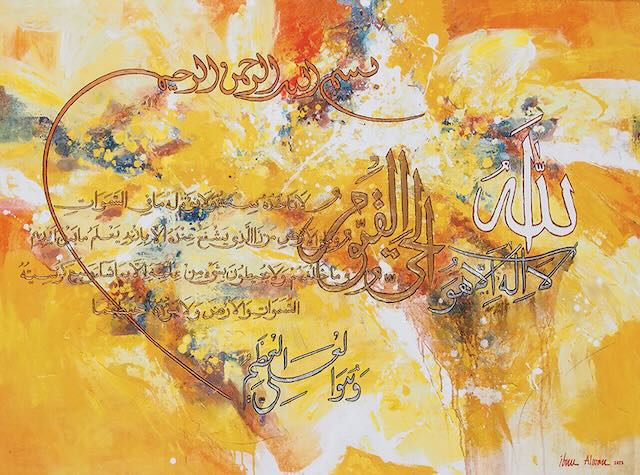 بسم الله الرحمن الرحيم
اللّٰهُ
لا اله الا هو
الحي القيوم
لا تأخذه سنة ولا نوم له ما في السموات
وما في الارض من ذا الذي يشفع عنده الا باذنه يعلم ما بين ايديهم
وما خلفهم ولا يحيطون بشيء من علمه الا بما شاء وسع كرسيه
السموات والارض ولا يؤده حفظهما
وهو العلي العظيم
ibnu Alwan